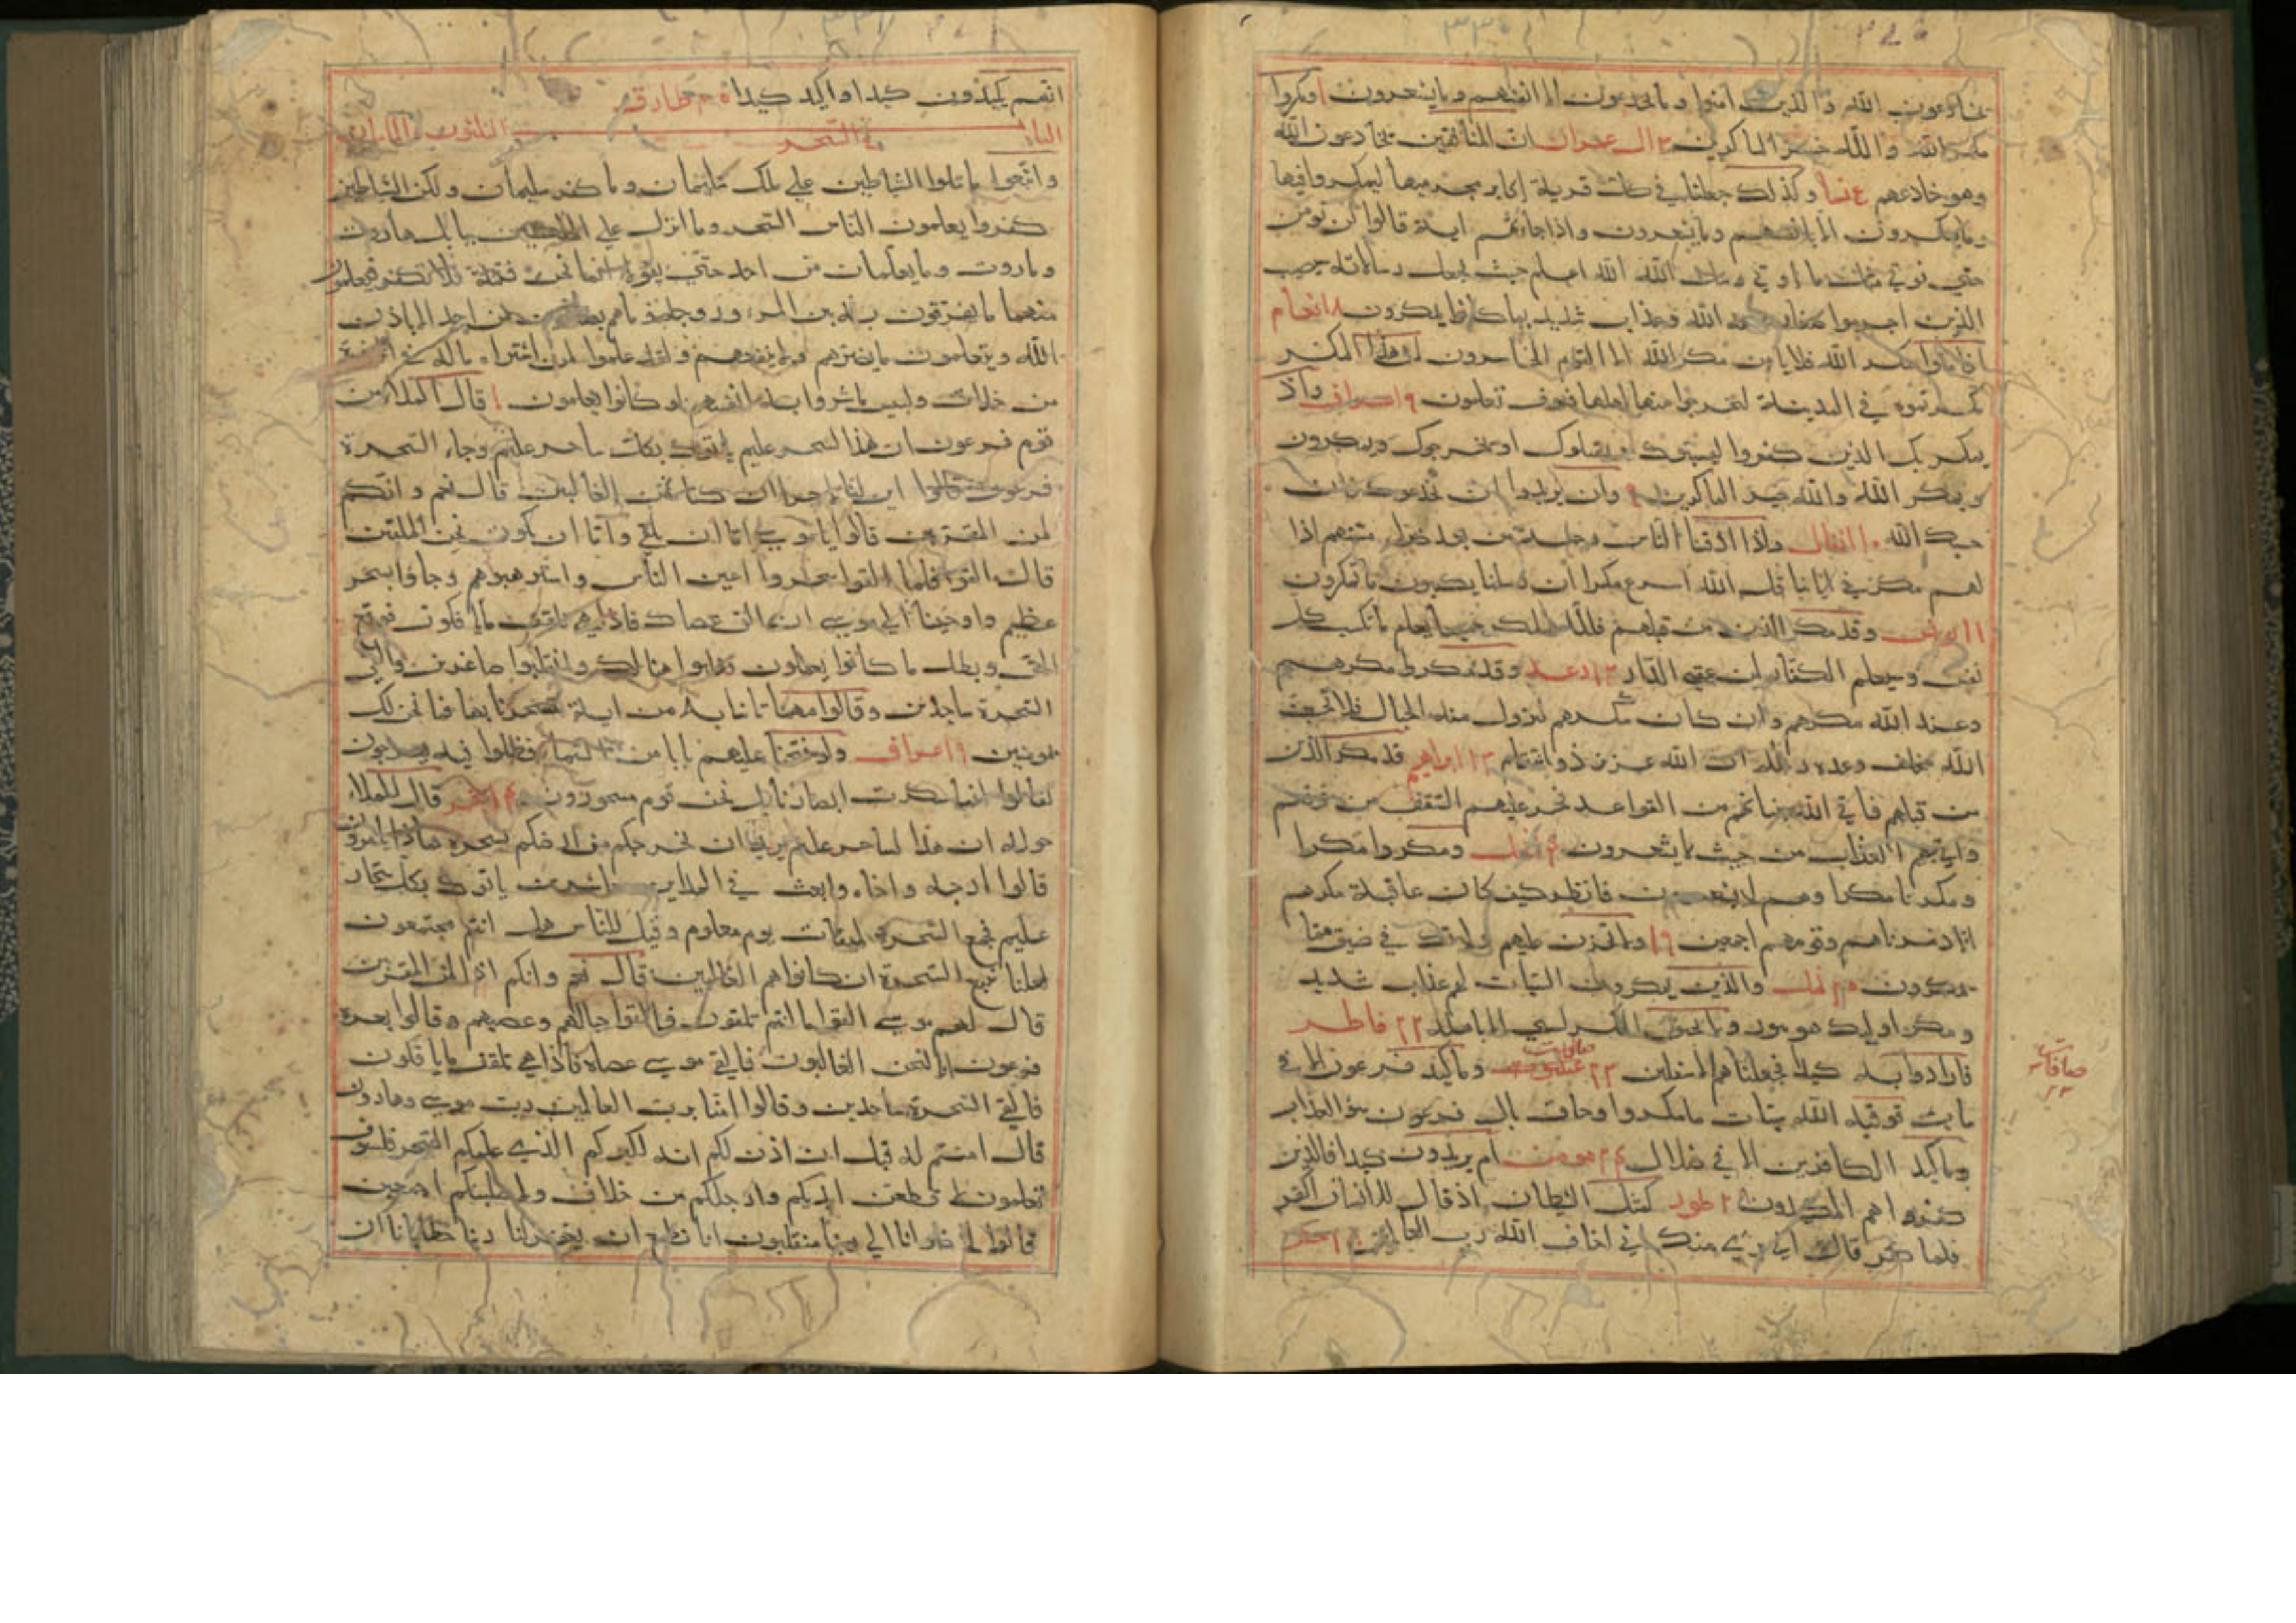 يخادعون الله والذين امنوا وما يخدعون الا انفسهم وما يشعرون ا ومكروا
مكر الله والله خير الماكرين ٣ ال عمران ان المنافقين يخادعون الله
وهو خادعهم ع نسا وكذلك جعلنا في كل قرية اكابر مجرميها ليمكروا فيها
وما يمكرون الا بانفسهم وما يشعرون واذا جائتهم اية قالوا لن نومن
حتى نوتي مثل ما اوتي رسل الله الله اعلم حيث يجعل رسالاته سيصيب
الذين اجرموا صغار عند الله وعذاب شديد بما كانوا يمكرون ٨ انعام
افامنوا مكر الله فلا يامن مكر الله الا القوم الخاسرون ان هذا المكر
مكرتموه في المدينة لتخرجوا منها اهلها فسوف تعلمون ٩ اعراف واذ
يمكر بك الذين كفروا ليثبتوك او يقتلوك او يخرجوك ويمكرون
ويمكر الله والله خير الماكرين ٩ وان يريدوا ان يخدعوك فان
حسبك الله ١٠ انفال واذا اذقنا الناس رحمة من بعد ضراء مستهم اذا
لهم مكر في اياتنا قل الله اسرع مكرا ان رسلنا يكتبون ما تمكرون
١١ يونس وقد مكر الذين من قبلهم فلله المكر جميعا يعلم ما تكسب كل
نفس وسيعلم الكفار لمن عقبى الدار ١٣ رعد وقد مكروا مكرهم
وعند الله مكرهم وان كان مكرهم لتزول منه الجبال فلا تحسبن
الله مخلف وعده رسله ان الله عزيز ذو انتقام ١٣ ابراهيم قد مكر الذين
من قبلهم فاتي الله بنيانهم من القواعد فخر عليهم السقف من فوقهم
واتيهم العذاب من حيث لا يشعرون ١٤ نحل ومكروا مكرا
ومكرنا مكرا وهم لا يشعرون فانظر كيف كان عاقبة مكرهم
انا دمرناهم وقومهم اجمعين ١٩ ولا تحزن عليهم ولا تك في ضيق مما
يمكرون نمل والذين يمكرون السيات لهم عذاب شديد
ومكر اوليك هو يبور ولا يحيق المكر السيي الا باهله ٢٢ فاطر
فارادوا به كيدا فجعلناهم الاسفلين ٢٣ صافات وما كيد فرعون الا في
صافات ٢٣
تباب فوقيه الله سيات ما مكروا وحاق بال فرعون سوء العذاب
وما كيد الكافرين الا في ضلال ٢٤ مومن ام يريدون كيدا فالذين
كفروا هم المكيدون طور كمثل الشيطان اذ قال للانسان اكفر
فلما كفر قال اني بريء منك اني اخاف الله رب العالمين حشر
انهم يكيدون كيدا واكيد كيدا طارق
الباب في السحر
واتبعوا ما تتلوا الشياطين على ملك سليمان وما كفر سليمان ولكن الشياطين
كفروا يعلمون الناس السحر وما انزل علي الملكين ببابل هاروت
وماروت وما يعلمان من احد حتى يقولا انما نحن فتنة فلا تكفر فيتعلمون
منهما ما يفرقون به بين المرء وزوجه وما هم بضارين به من احد الا باذن
الله ويتعلمون ما يضرهم ولا ينفعهم ولقد علموا لمن اشتراه ما له في الاخرة
من خلاق ولبيس ما شروا به انفسهم لو كانوا يعلمون ا قال الملاء من
قوم فرعون ان هذا لسحر عليم ياتوك بكل ساحر عليم وجاء السحرة
فرعون قالوا اين لنا لاجرا ان كنا نحن الغالبين قال نعم وانكم
لمن المقربين قالوا يا موسي اما ان تلقي واما ان نكون نحن الملقين
قال القوا فلما القوا سحروا اعين الناس واسترهبوهم وجاؤا بسحر
عظيم واوحينا الي موسي ان الق عصاك فاذا هي تلقف ما يافكون فوقع
الحق وبطل ما كانوا يعملون فغلبوا هنالك وانقلبوا صاغرين والقي
السحرة ساجدين وقالوا مهما تاتنا به من اية لتسحرنا بها فما نحن لك
بمومنين ٩ اعراف ولو فتحنا عليهم بابا من السماء فظلوا فيه يعرجون
لقالوا انما سكرت ابصارنا بل نحن قوم مسحورون ١٤ حجر قال للملاء
حوله ان هذا لساحر عليم يريد ان يخرجكم من ارضكم بسحره فماذا تامرون
قالوا ارجه واخاه وابعث في المداين حاشرين ياتوك بكل سحار
عليم فجمع السحرة لميقات يوم معلوم وقيل للناس هل انتم مجتمعون
لعلنا نتبع السحرة ان كانوا هم الغالبين قال نعم وانكم اذا لمن المقربين
قال لهم موسي القوا ما انتم ملقون فالقوا حبالهم وعصيهم وقالوا بعزة
فرعون انا لنحن الغالبون فالقي موسي عصاه فاذا هي تلقف ما يافكون
فالقي السحرة ساجدين وقالوا امنا برب العالمين رب موسي وهارون
قال امنتم له قبل ان اذن لكم انه لكبيركم الذي علمكم السحر فلسوف
تعلمون لاقطعن ايديكم وارجلكم من خلاف ولاصلبنكم اجمعين
قالوا لا ضير انا الي ربنا منقلبون انا نطمع ان يغفر لنا ربنا خطايانا ان